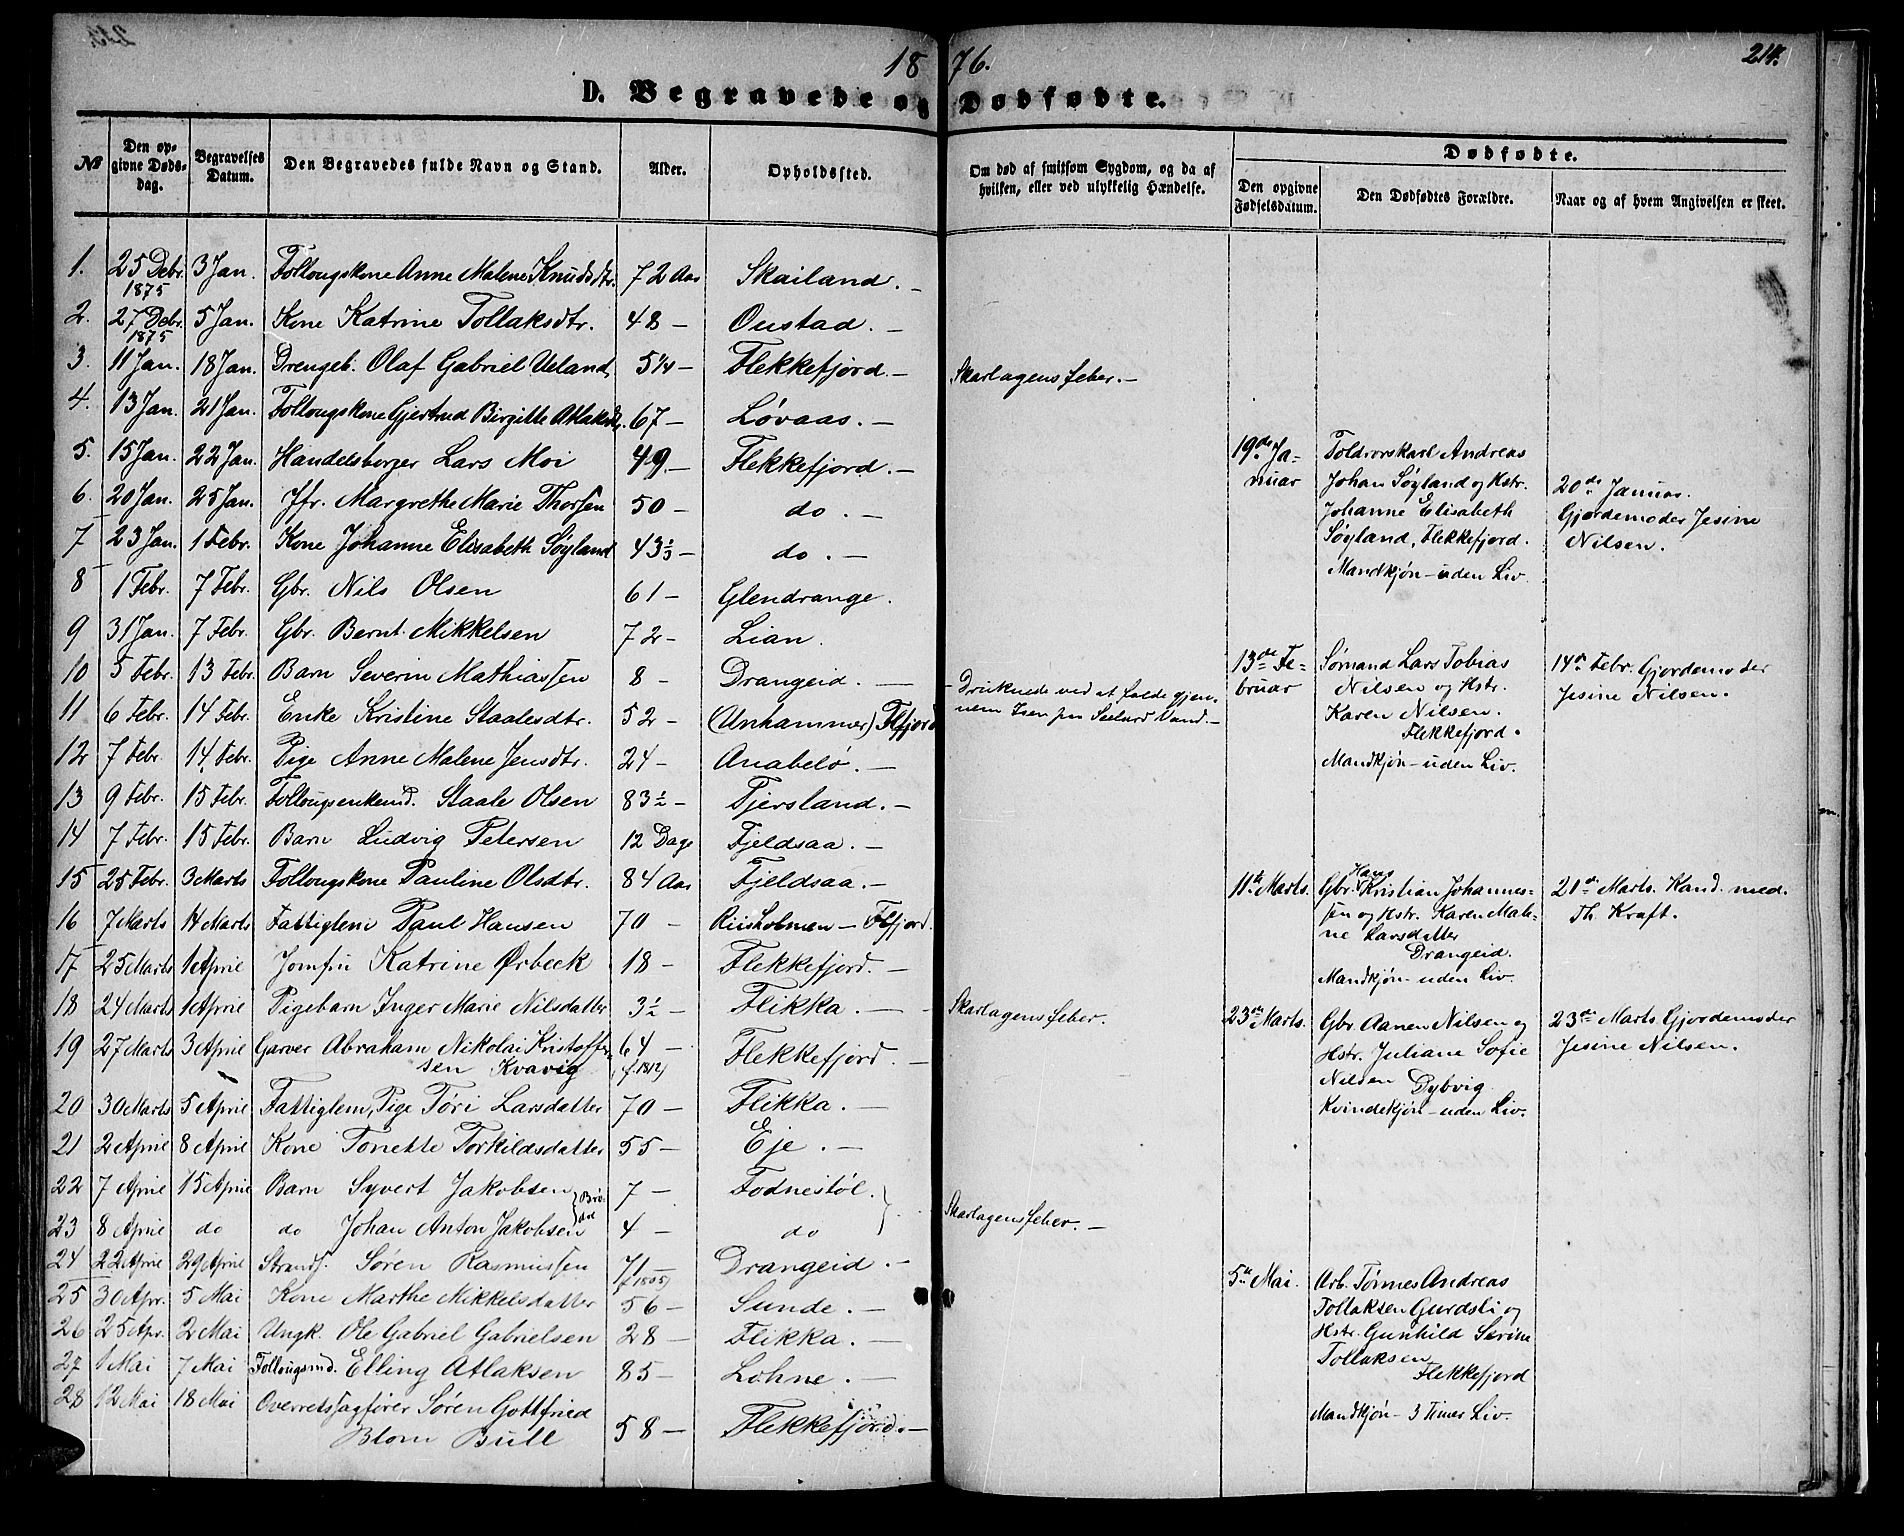 1876.
214.
D. Begravede og Dødfødte.
№ | Den opgivne Dødsdag. | Begravelses Datum. | Den Begravedes fulde Navn og Stand. | Alder. | Opholdssted. | Om død af smitsom Sygdom, og da af hvilken, eller ved ulykkelig Hændelse.
Dødfødte.
Den opgivne Fødselsdatum. | Den Dødfødtes Forældre. | Naar og af hvem Angivelsen er skeet.
1. 25 Debr. 1875 3 Jan. Follougskone Anne Malene Knudsdtr. 72 Aar Skailand. -
2. 27 Debr. 1875 5 Jan. Kone Katrine Tollaksdtr. 48 - Oustad. -
3. 11 Jan. 18 Jan. Drengeb. Olaf Gabriel Ueland 5 1/4 - Flekkefjord. - Skarlagensfeber. -
4. 13 Jan. 21 Jan. Follougskone Gjertrud Birgitte Atlaksdtr. 67 - Løvaas. -
5. 15 Jan. 22 Jan. Handelsborger Lars Moi 49. - Flekkefjord. -
6. 20 Jan. 25 Jan. Jfr. Margrethe Marie Thorsen 50 - do. -
7 23 Jan. 1 Febr. Kone Johanne Elisabeth Søyland 43 - do. -
8 1 Febr. 7 Febr. Gbr. Nils Olsen 61 - Glendrange.
9 31 Jan. 7 Febr. Gbr. Bernt Mikkelsen 72 - Lian.
10 5 Febr. 13 Febr. Barn Severin Mathiassen 8 - Drangeid. - Druknede ved at falde gjennem Isen paa Selurd Vand. -
11 6 Febr. 14 Febr. Enke Kristine Staalesdtr. 52 - (Anhammer) Flfjord
12 7 Febr. 14 Febr. Pige Anne Malene Jensdtr. 24 - Anabelø. -
13 9 Febr. 15 Febr. Follougsenkemd. Staale Olsen 83 1/2 - Tjersland. -
14 7 Febr. 15 Febr. Barn Ludvig Petersen 12 Dage Fjeldsaa. -
15 25 Febr. 3 Marts Follougskone Pauline Olsdtr. 84 Aar Fjeldsaa. -
16 7 Marts 14 Marts Fattiglem Paul Hansen 70 - Riisholmen - Flfjord.
17 25 Marts 1 Aprie Jomfru Katrine Ørbeck 18 - Flekkefjord. -
18 24 Marts 1 Aprie Pigebarn Inger Marie Nilsdatter 3 1/2 - Flikka. - Skarlagensfeber.
19 27 Marts 3 Aprie Garver Abraham Nikolai Kristoffersen Kvavig 64 - (f. 1812) Flekkefjord. -
20 30 Marts 5 Aprie Fattiglem, Pige Tøri Larsdatter 70 - Flikka. -
21 2 Aprie 8 Aprie Kone Tonette Torkildsdatter 55 - Eje. -
22 7 Aprie 15 Aprie Barn Syvert Jakobsen } Brødre 7 - Fodnestøl. }
23 8 Aprie do do Johan Anton Jakobsen 4 - do Skarlagensfeber. -
24 22 Aprie 29 Aprie Strands. Søren Rasmussen 71 - (f. 1805) Drangeid. -
25 30 Apr. 5 Mai Kone Marthe Mikkelsdatter 56 - Sunde. -
26 25 Apr. 2 Mai Ungk. Ole Gabriel Gabrielsen 28 - Flikka. -
27 1 Mai 7 Mai Follougsmd. Elling Atlaksen 85 - Lohne. -
28 12 Mai 18 Mai Overretssagfører Søren Gottfried Blom Bull 58 - Flekkefjord. -
19de Januar
Toldrorskarl Andreas
Johan Søyland og Hstr.
Johanne Elisabeth
Søyland, Flekkefjord.
Mandkjøn - uden Liv
20de Januar.
Gjordemoder Jesine
Nilsen.
13de Februar
Sømand Lars Tobias
Nilsen og Hstr.
Karen Nilsen.
Flekkefjord.
Mandkjøn - uden Liv.
14de Febr. Gjordemoder
Jesine Nilsen.
11te Marts.
Gbr. Hans Kristian Johannes-
sen og Hstr. Karen Male-
ne Larsdatter
Drangeid.
Mandkjøn - uden Liv.
21de Marts. Kand. med.
Th. Kraft.
23de Marts.
Gbr. Aanen Nilsen og
Hstr. Juliane Sofie
Nilsen Dybvig
Kvindekjøn - uden Liv.
23de Marts Gjordemoder
Jesine Nilsen.
5te Mai.
Arb. Tønnes Andreas
Tollaksen Gurdsli og
Hstr. Gunhild Serine
Tollaksen
Flekkefjord
Mandkjøn - 3 Timer Liv.